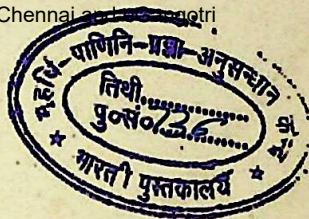 Chennai and eGangotri
महर्षि-पाणिनि-प्रज्ञा-अनुसन्धान केंद्र
तिथी..............
पु०सं०.726.......
भारती पुस्तकालय